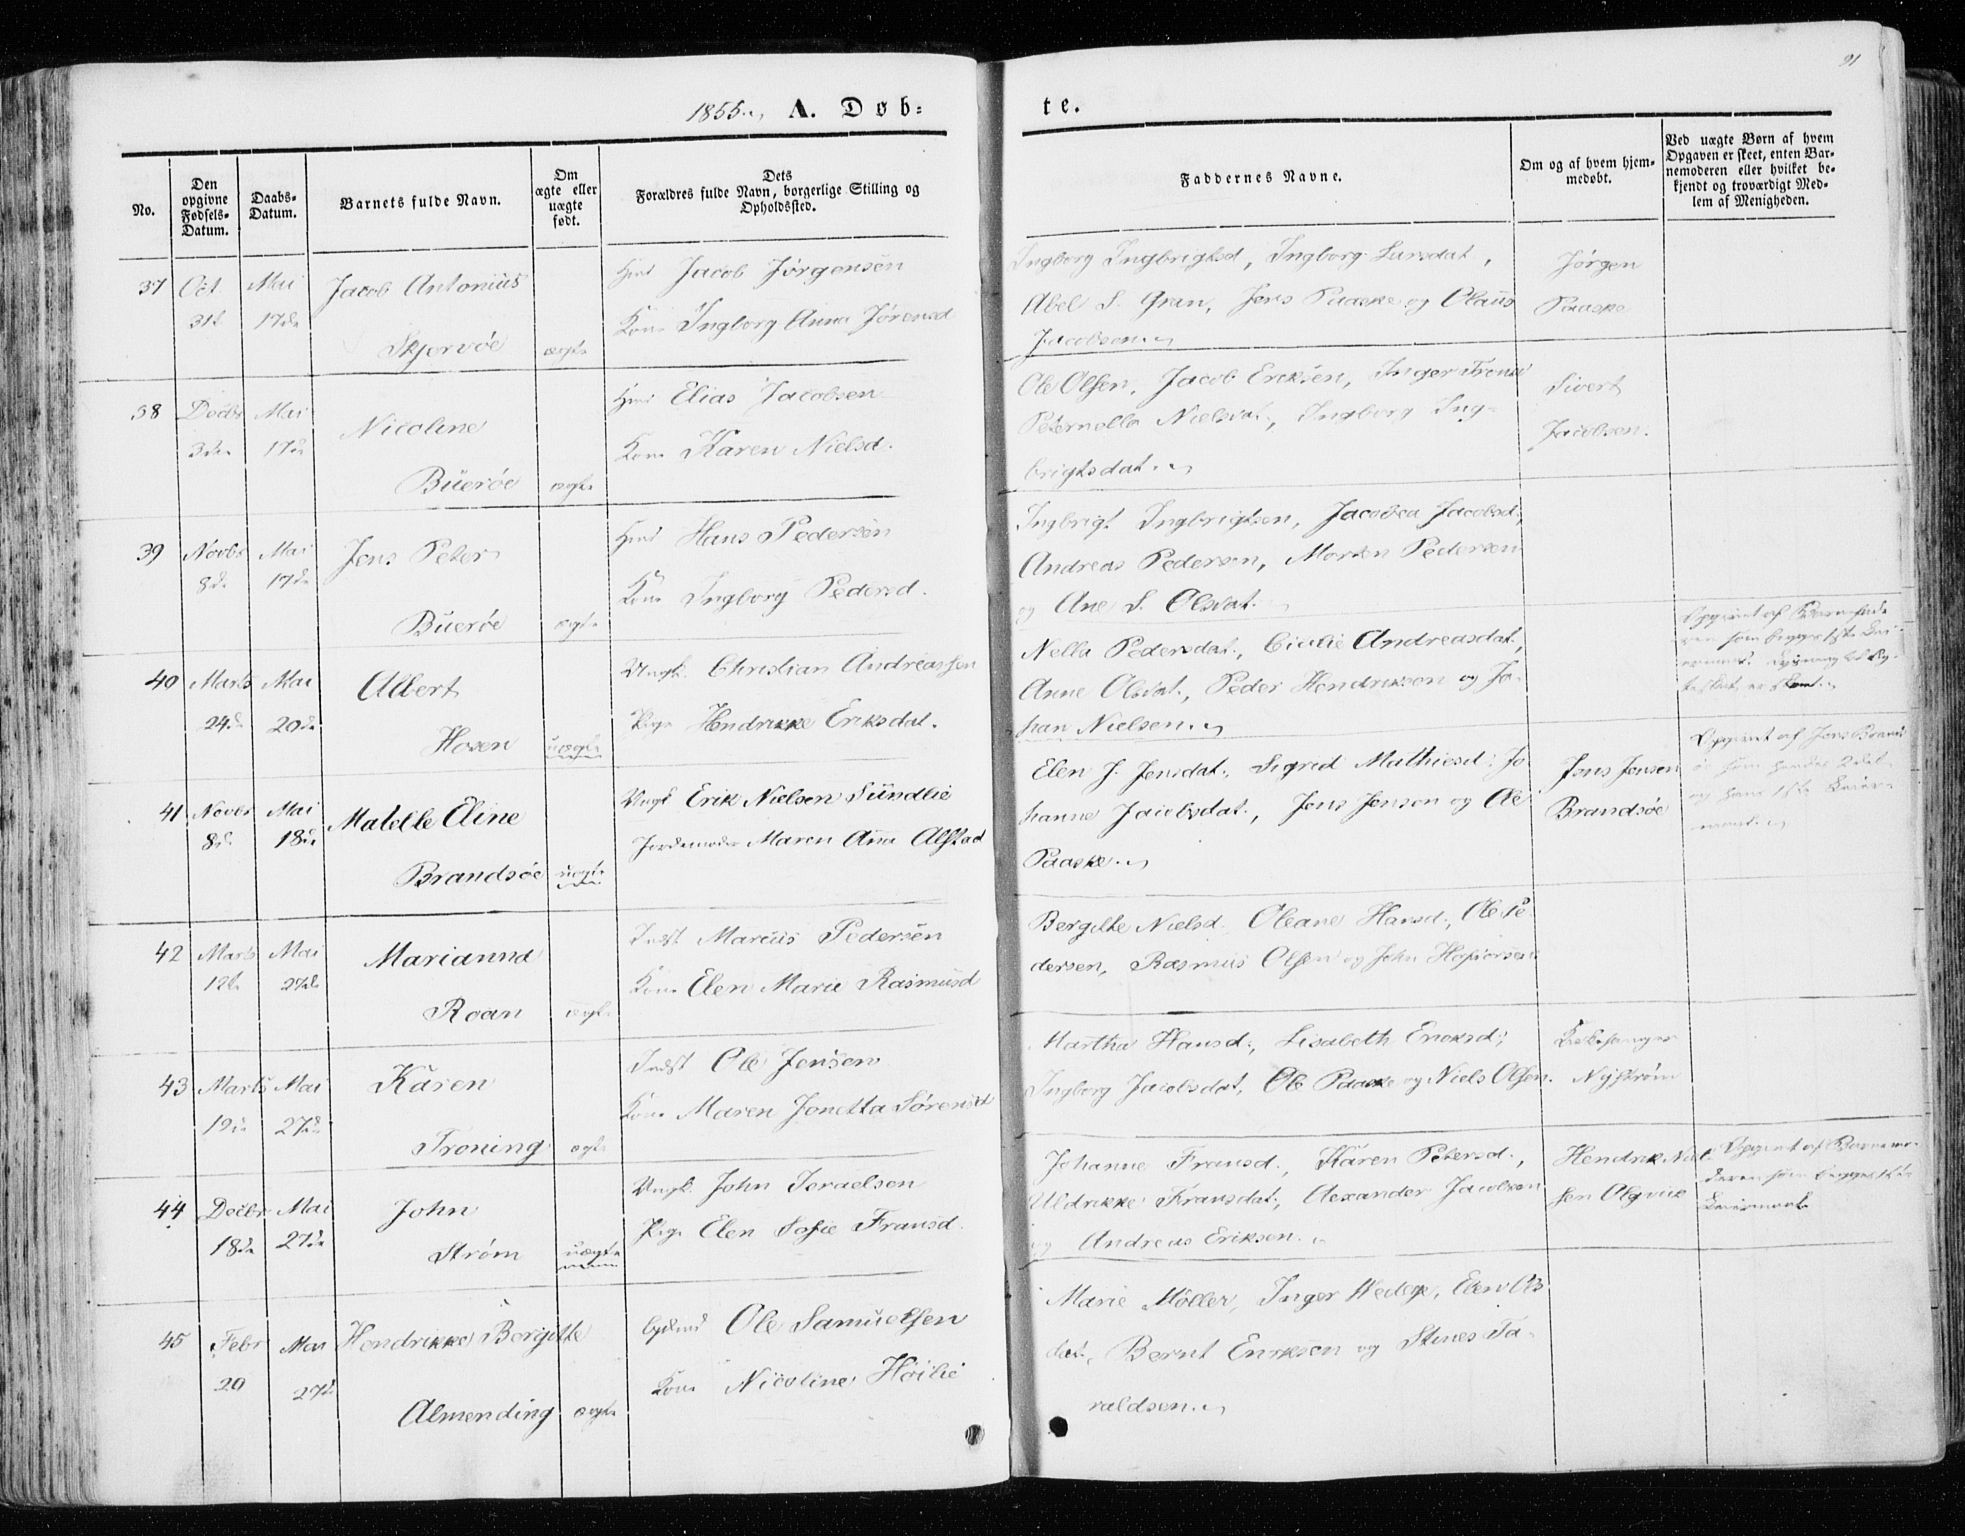 91
1855. A. Døb-
te.
No.
Den opgivne Fødsels-Datum.
Daabs-Datum.
Barnets fulde Navn.
Om ægte eller uægte født.
Dets Forældres fulde Navn, borgerlige Stilling og Opholdssted.
Faddernes Navne.
Om og af hvem hjemmedøbt.
Ved uægte Børn af hvem Opgaven er skeet, enten Barnemoderen eller hvilket bekjendt og troværdigt Medlem af Menigheden.
37 Oct. 31t Mai 17de Jacob Antonius
Skjervöe ægte
Jacob Jörgensen
Kone Ingborg Anna Jörensd
Ingborg Ingbrigtsd, Ingborg Larsdat,
Abel S. Gran, Jens Paaske og Olaus
Jacobsen.
Jörgen
Paaske
38 Decbr 3die Mai 17de Nicoline
Büeröe ægte
Elias Jacobsen
Kone Karen Nielsd.
Ole Olsen, Jacob Ericksen, Inger
Peternella Nielsdat, Ingborg Ing-
brigtsdat.
Sivert
Jacobsen.
39 Novbr 8de Mai 17de Jens Peter
Büeröe ægte
Hans Pedersen
Kone Ingborg Pedersd.
Ingbrigt Ingbrigtsen, Jacobea Jacobsd,
Andreas Pedersen, Morten Pedersen
og Ane S. Olsdat.
40 Marts 24de Mai 20de Albert
Hosen uægte
Ungk. Christian Andreassen
Pige Hendrikke Eriksdat.
Nella Pedersdat., Cicilie Andreasdat,
Anne Olsdat., Peder Hendriksen og Jo-
han Nielsen.
Opgivet af
41 Novbr 8de Mai 18de Matelle Eline
Brandsöe uægte
Ungk Erik Nielsen Sündlie
Jordemoder Maren Ana Alstad
Elen J. Jensdat., Sigrid Mathiesd, Jo-
hanne Jacobsdat., Jens Jensen og Ole
Paaske.
Jens Jensen
Brandsöe
Opgivet af Jens
42 Marts 12te Mai 27de Marianna
Roan ægte
Indst Marcus Pedersen
Kone Elen Marie Rasmusd
Bergitte Nielsd. Oleane Hansd., Ole Pe-
dersen, Rasmus Olsen og John
43 Marts 19de Mai 27de Karen
Troning ægte
Indst Ole Jensen
Kone Maren Jonetta Sörensd
Martha Hansd., Lisabeth Ericksd,
Ingborg Jacobsdat, Ole Paaske og Niels Olsen.
Kirkesanger
Nyström
44 Decbr 18de Mai 27de John
Ström uægte
Ungk. John Israelsen
Pige Elen Sofie Fransd.
Johanne Fransd., Karen Petersd.,
Uldrikke Fransdat., Alexander Jacobsen
og Andreas Eriksen.
Hendrik Niel-
sen
Opgivet af Barnemo-
deren som
45 Febr 20 Mai 27de Hendrikke Bergitte
Almending ægte
Ole Samuelsen
Kone Nicoline Höilie
Marie Möller, Inger Wedege, Elen Ols
dat, Bernt Eriksen og Stines Ta-
raldsen.